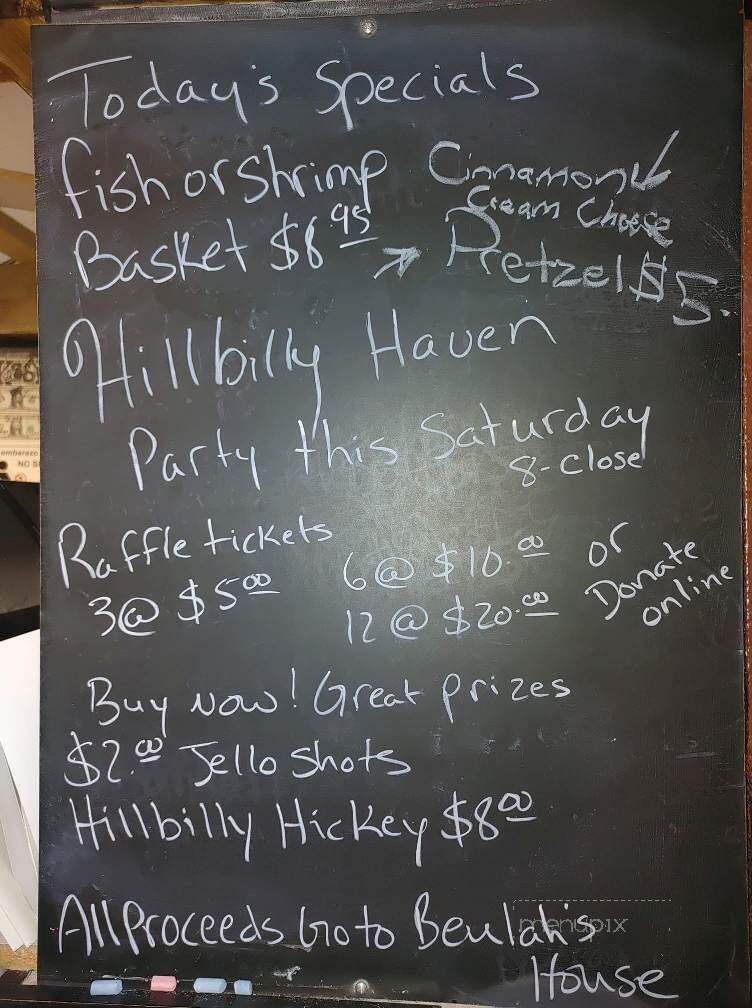 Today's Specials
fish or shrimp
Basket $6.95
Cinnamon
Cream Cheese
Pretzel $5.
Hillbilly Haven
Party this Saturday
8-close
Raffle tickets
3@ $5.00
6@ $10.00
12@ $20.00
or
Donate
online
Buy Now! Great prizes
$2.00 Jello Shots
Hillbilly Hickey $8.00
All Proceeds Go to Beulah's
House
menupix
embarazo
NO